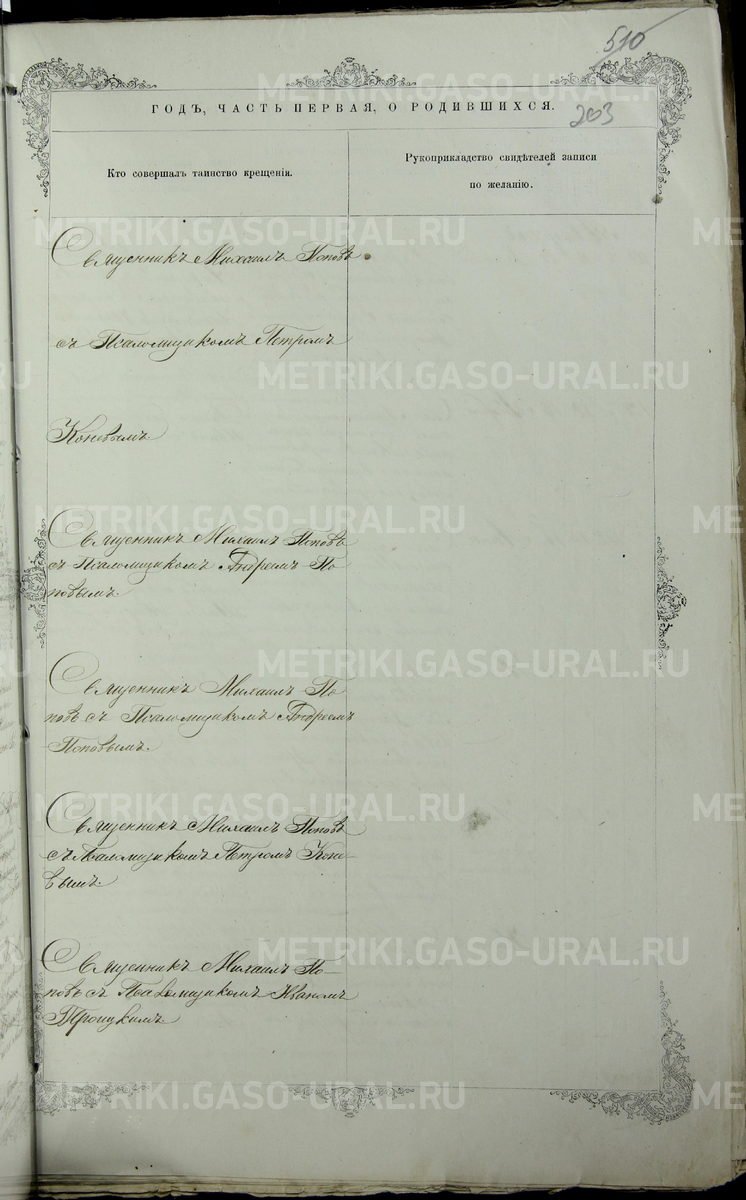 510
ГОДЪ, ЧАСТЬ ПЕРВАЯ, О РОДИВШИХСЯ.
203
Кто совершалъ таинство крещенія.
Рукоприкладство свидѣтелей записи
по желанію.
Священникъ Михаилъ Поповъ
съ Псаломщикомъ Петромъ
Коневымъ.
Священникъ Михаилъ Поповъ
съ Псаломщикомъ Андреемъ По-
повымъ.
Священникъ Михаилъ По-
повъ съ Псаломщикомъ Андреемъ
Поповымъ.
Священникъ Михаилъ Поповъ
съ Псаломщикомъ Петромъ Коне-
вымъ.
Священникъ Михаилъ По-
повъ съ Псаломщикомъ Иваномъ
Троицкимъ.
METRIKI.GASO-URAL.RU